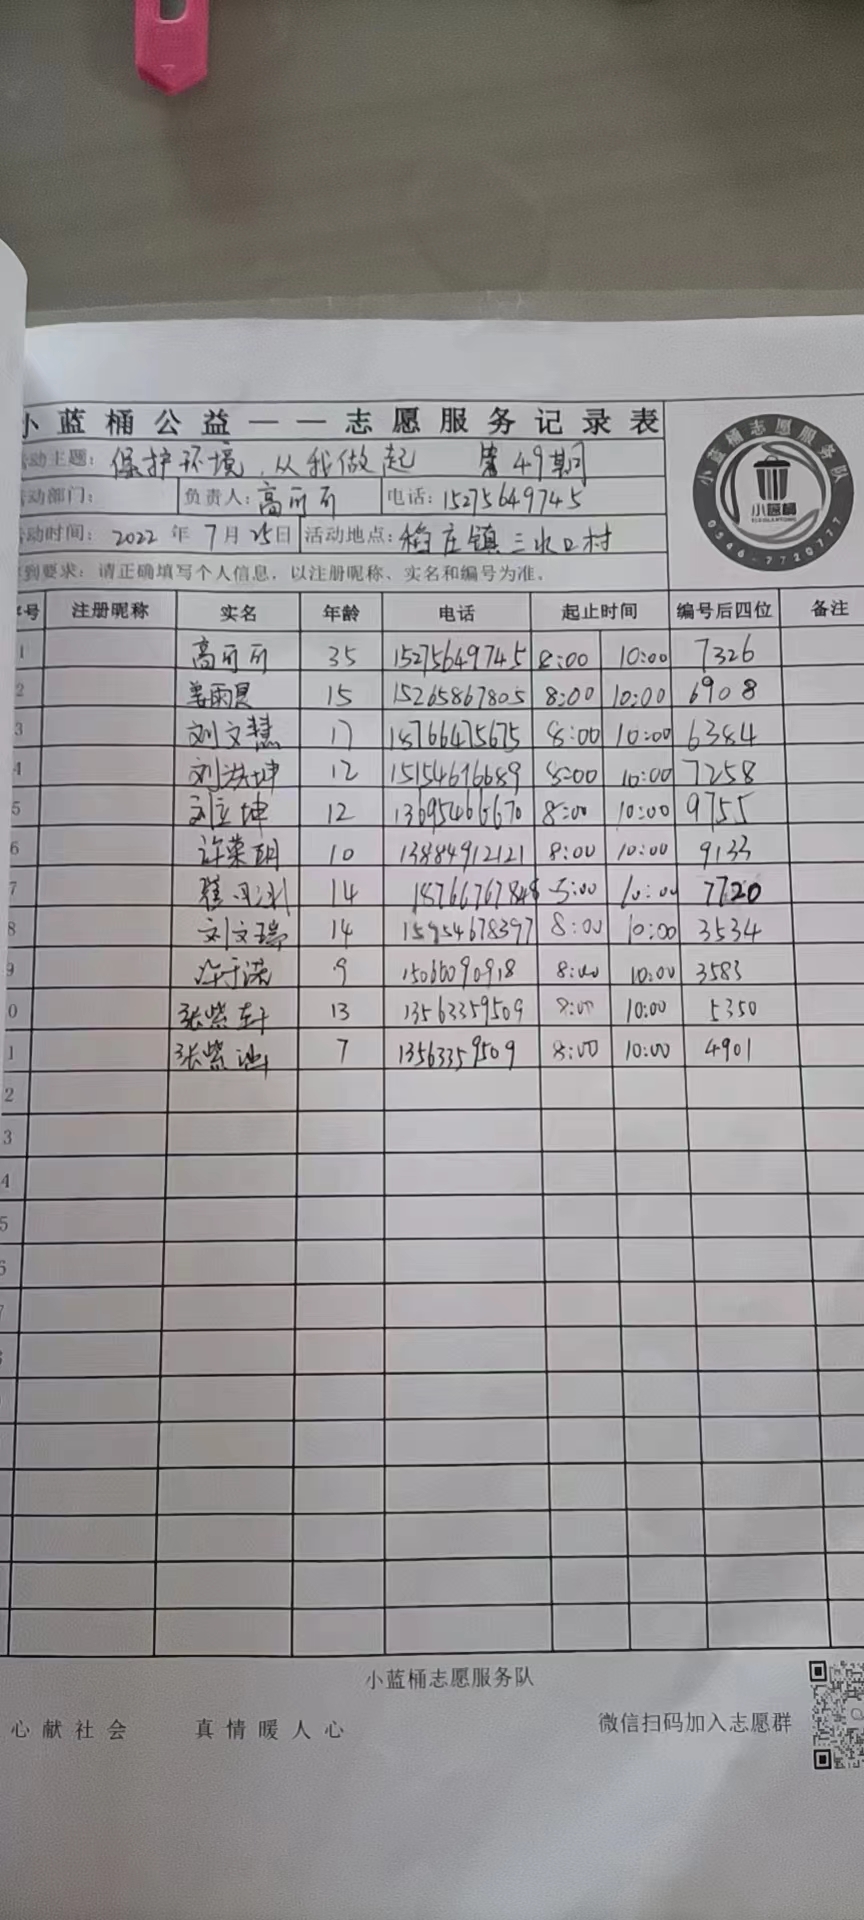 小蓝桶公益——志愿服务记录表
动主题: 保护环境,从我做起 第49期
动部门: 负责人: 高可可 电话: 15275649745
动时间: 2022 年 7 月 25 日 活动地点: 稻庄镇三水口村
到要求: 请正确填写个人信息,以注册昵称、实名和编号为准。
小蓝桶志愿服务队
小蓝桶
0546-7720777
号 注册昵称 实名 年龄 电话 起止时间 编号后四位 备注
1 高可可 35 15275649745 8:00 10:00 7326
2 姜雨 15 15265867805 8:00 10:00 6908
3 刘文慧 17 18766475675 8:00 10:00 6384
4 刘洪坤 12 15154696689 8:00 10:00 7258
5 刘立坤 12 13695466670 8:00 10:00 9755
6 许荣 10 13884912121 8:00 10:00 9133
7 14 18766767848 5:00 10:00 7720
8 刘文瑞 14 15954678397 8:00 10:00 3534
9 许于诺 9 15066090918 8:00 10:00 3583
0 张紫轩 13 13563359509 8:00 10:00 5350
1 张紫 7 13563359509 8:00 10:00 4901
2
3
4
5
6
7
小蓝桶志愿服务队
心献社会 真情暖人心 微信扫码加入志愿群